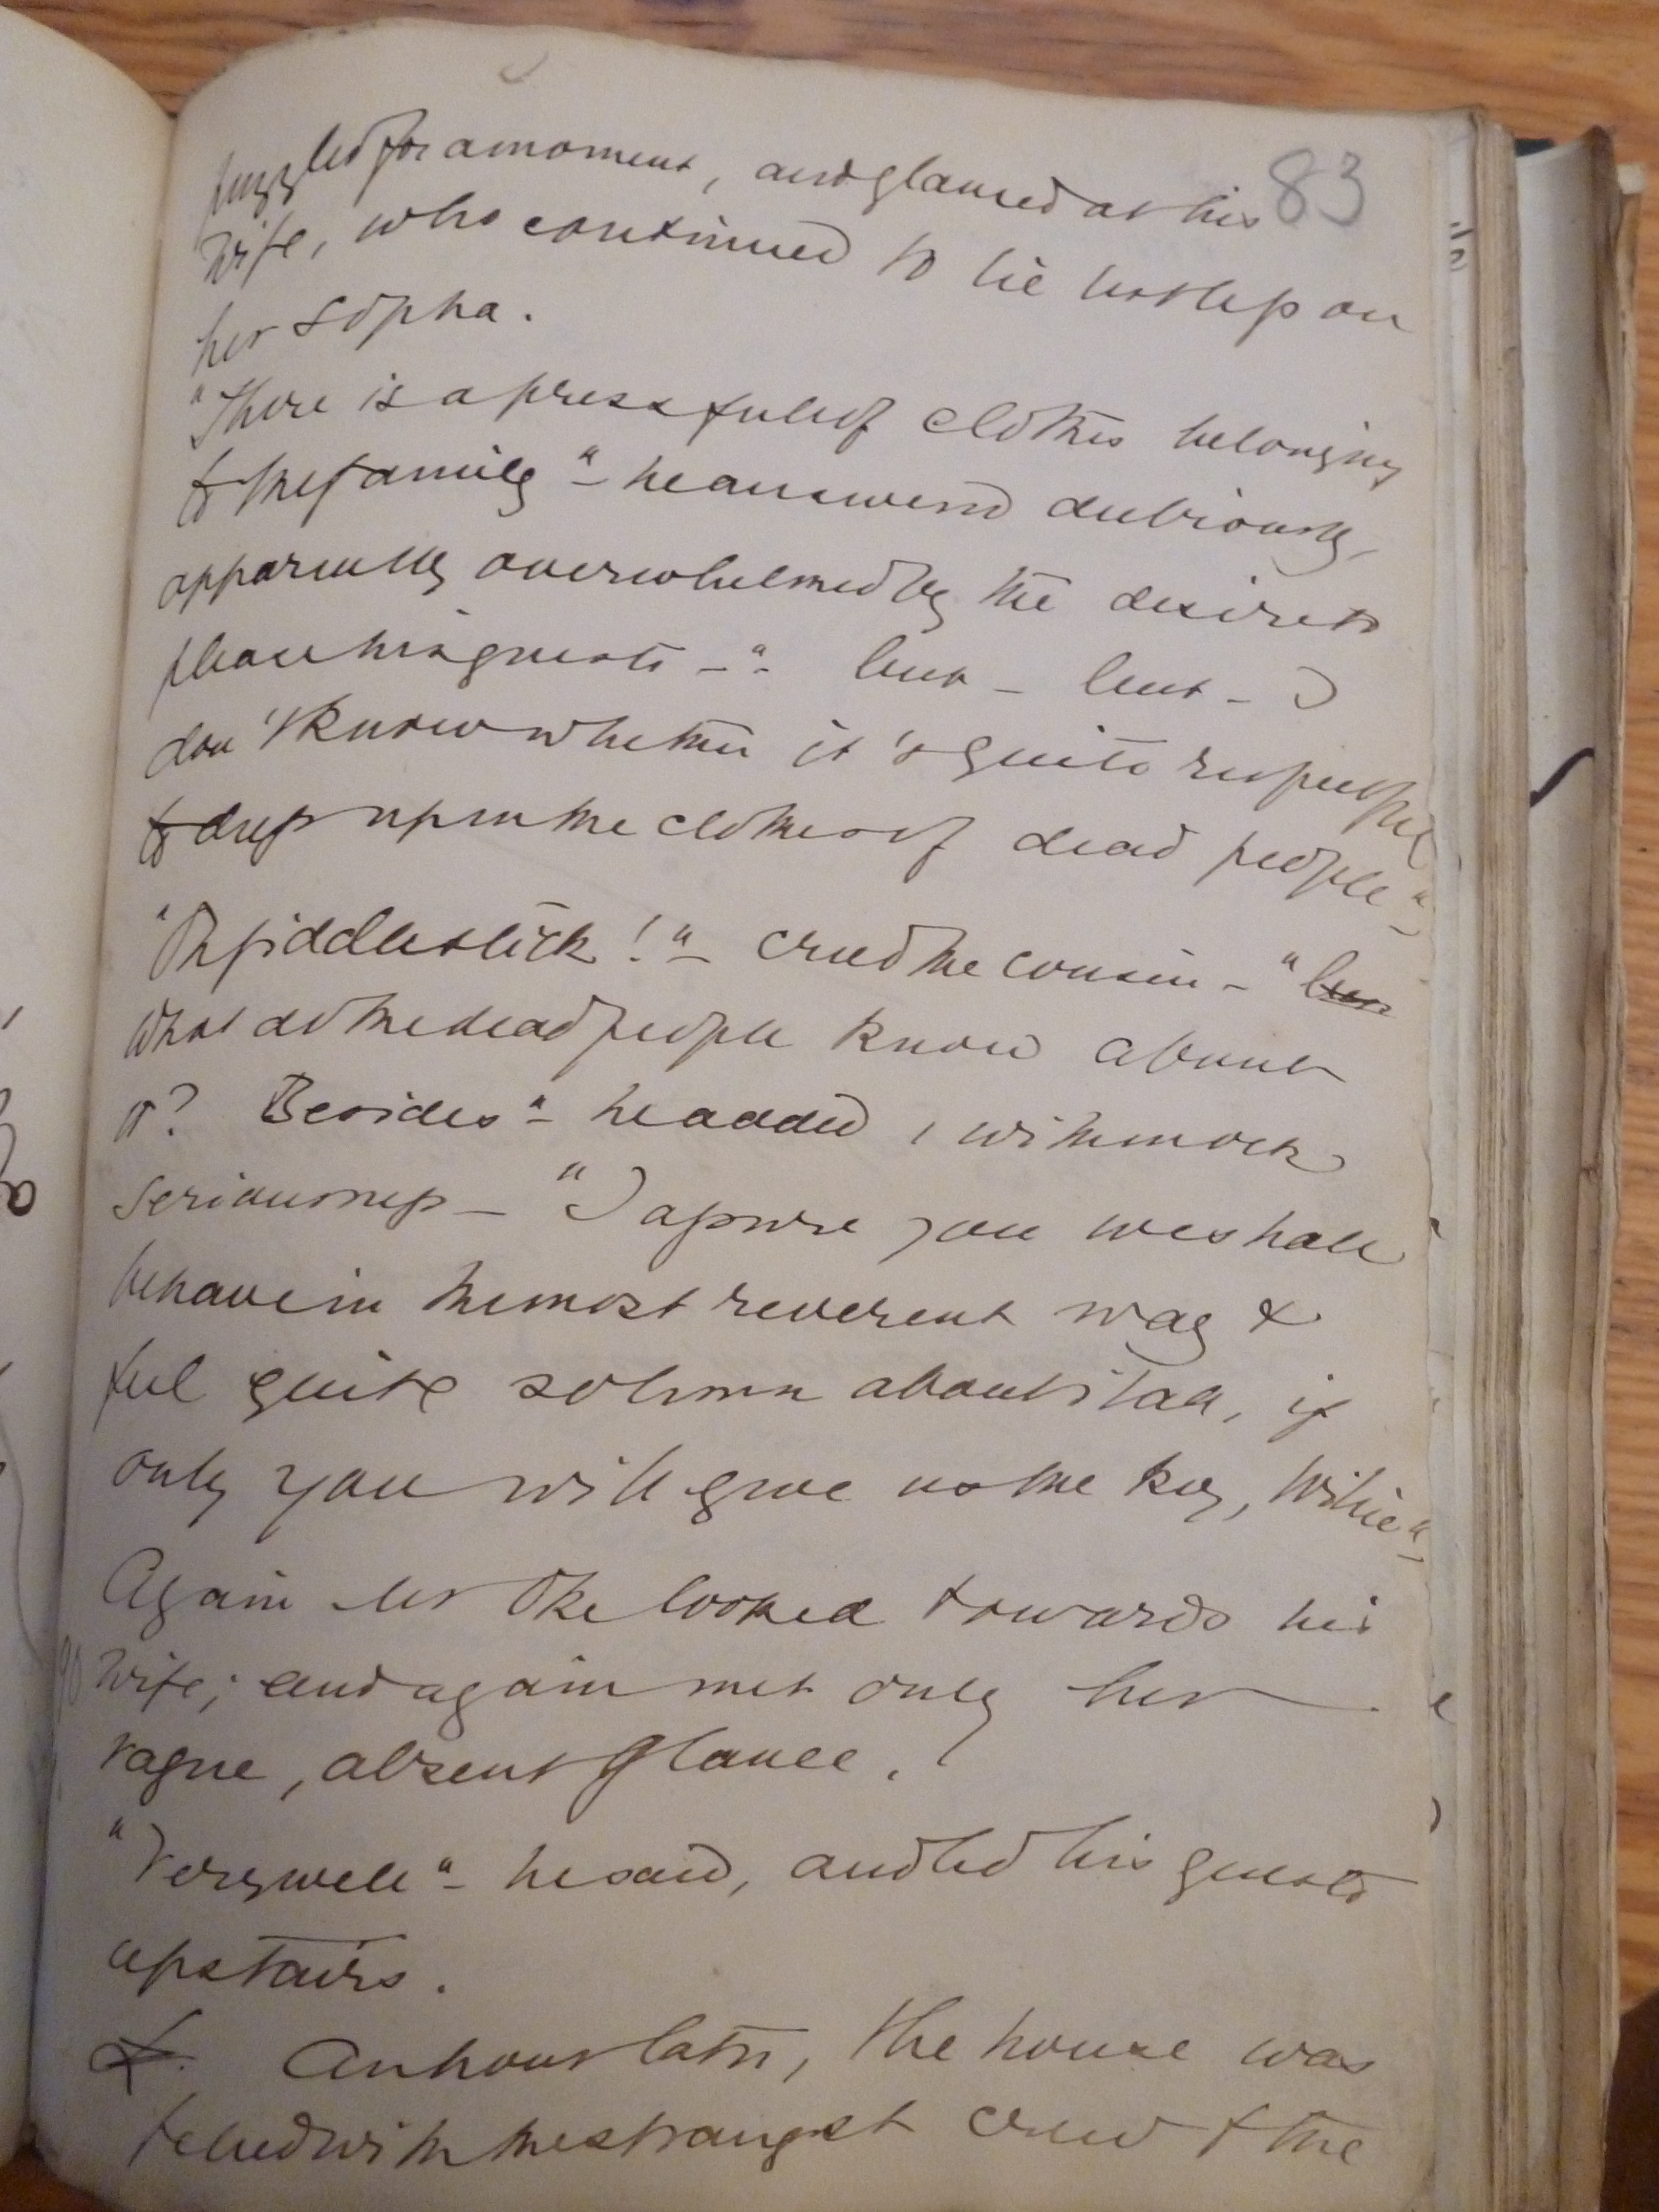 83
puzzled for a moment, and glanced at his
wife, who continued to lie listless on
her sopha.
"There is a press full of clothes belonging
to the family" - he answered dubiously,
apparently overwhelmed by the desire to
please his guests - "- but - but - I
don't know whether it's quite respectful
to dress up in the clothes of dead people"-
"Oh fiddlestick!" - cried the cousin - "but
What do the dead people know about
it? Besides" - he added, with mock
seriousness - "I assure you we shall
behave in the most reverent way &
feel quite solemn about it all, if
only you will give us the key, Willie"-
Again Mr Oke looked towards his
wife; and again met only her
vague, absent glance.
"Very well" - he said, and led his guests
upstairs.
An hour later, the house was
filled with the strangest crew & the